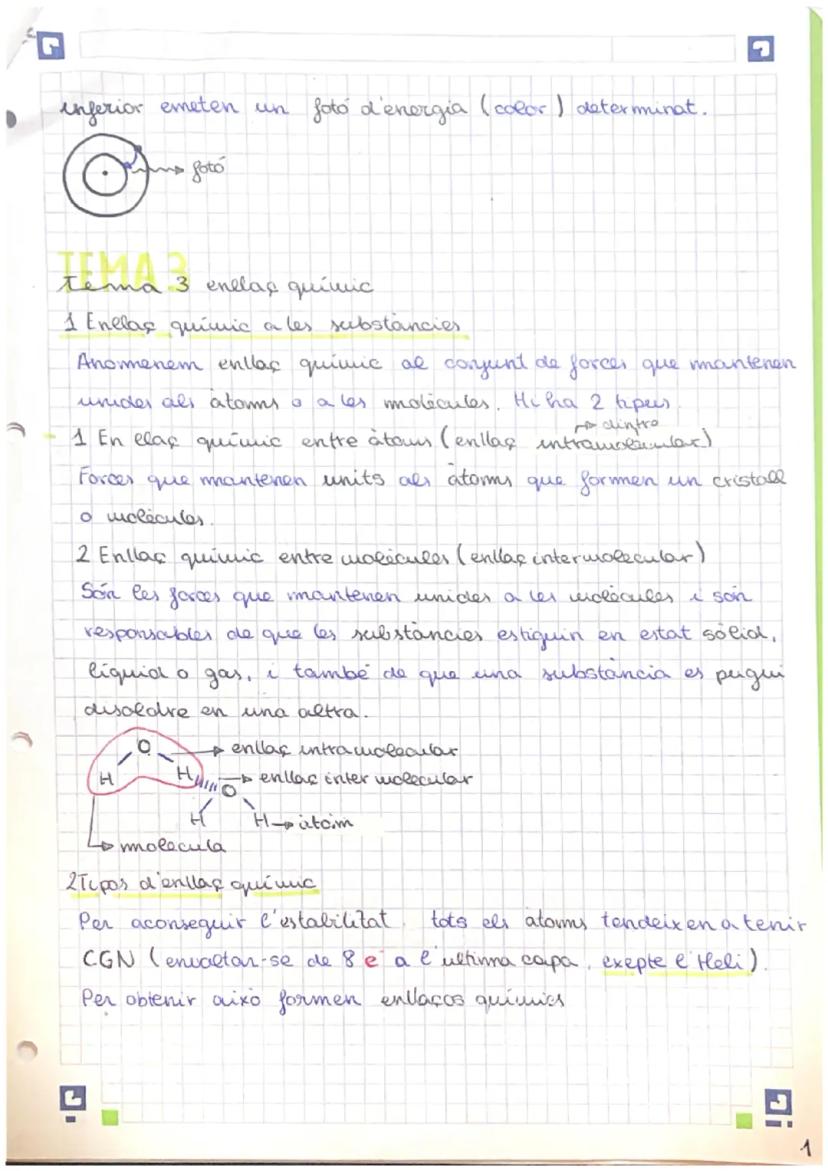 inferior emeten un fotó d'energia (color) determinat.
fotó
TEMA 3
Tema 3 enllaç químic
1 Enllaç químic a les substàncies
Anomenem enllaç químic al conjunt de forces que mantenen
unides als àtoms o a les molècules. Hi ha 2 tipus
dintre
1 En llaç químic entre àtoms (enllaç intramolecular)
Forces que mantenen units als àtoms que formen un cristall
o molècules.
2 Enllaç químic entre molècules (enllaç intermolecular)
Són les forces que mantenen unides a les molècules i són
responsables de que les substàncies estiguin en estat sòlid,
líquid o gas, i també de que una substància es pugui
disoldre en una altra.
O enllaç intramolecular
H H enllaç inter molecular
O
H H àtom
molecula
2 Tipos d'enllaç químic
Per aconseguir l'estabilitat tots els àtoms tendeixen a tenir
CGN (envoltar-se de 8 e⁻ a l'ultima capa, exepte l'Heli).
Per obtenir aixó formen enllaços químics
1